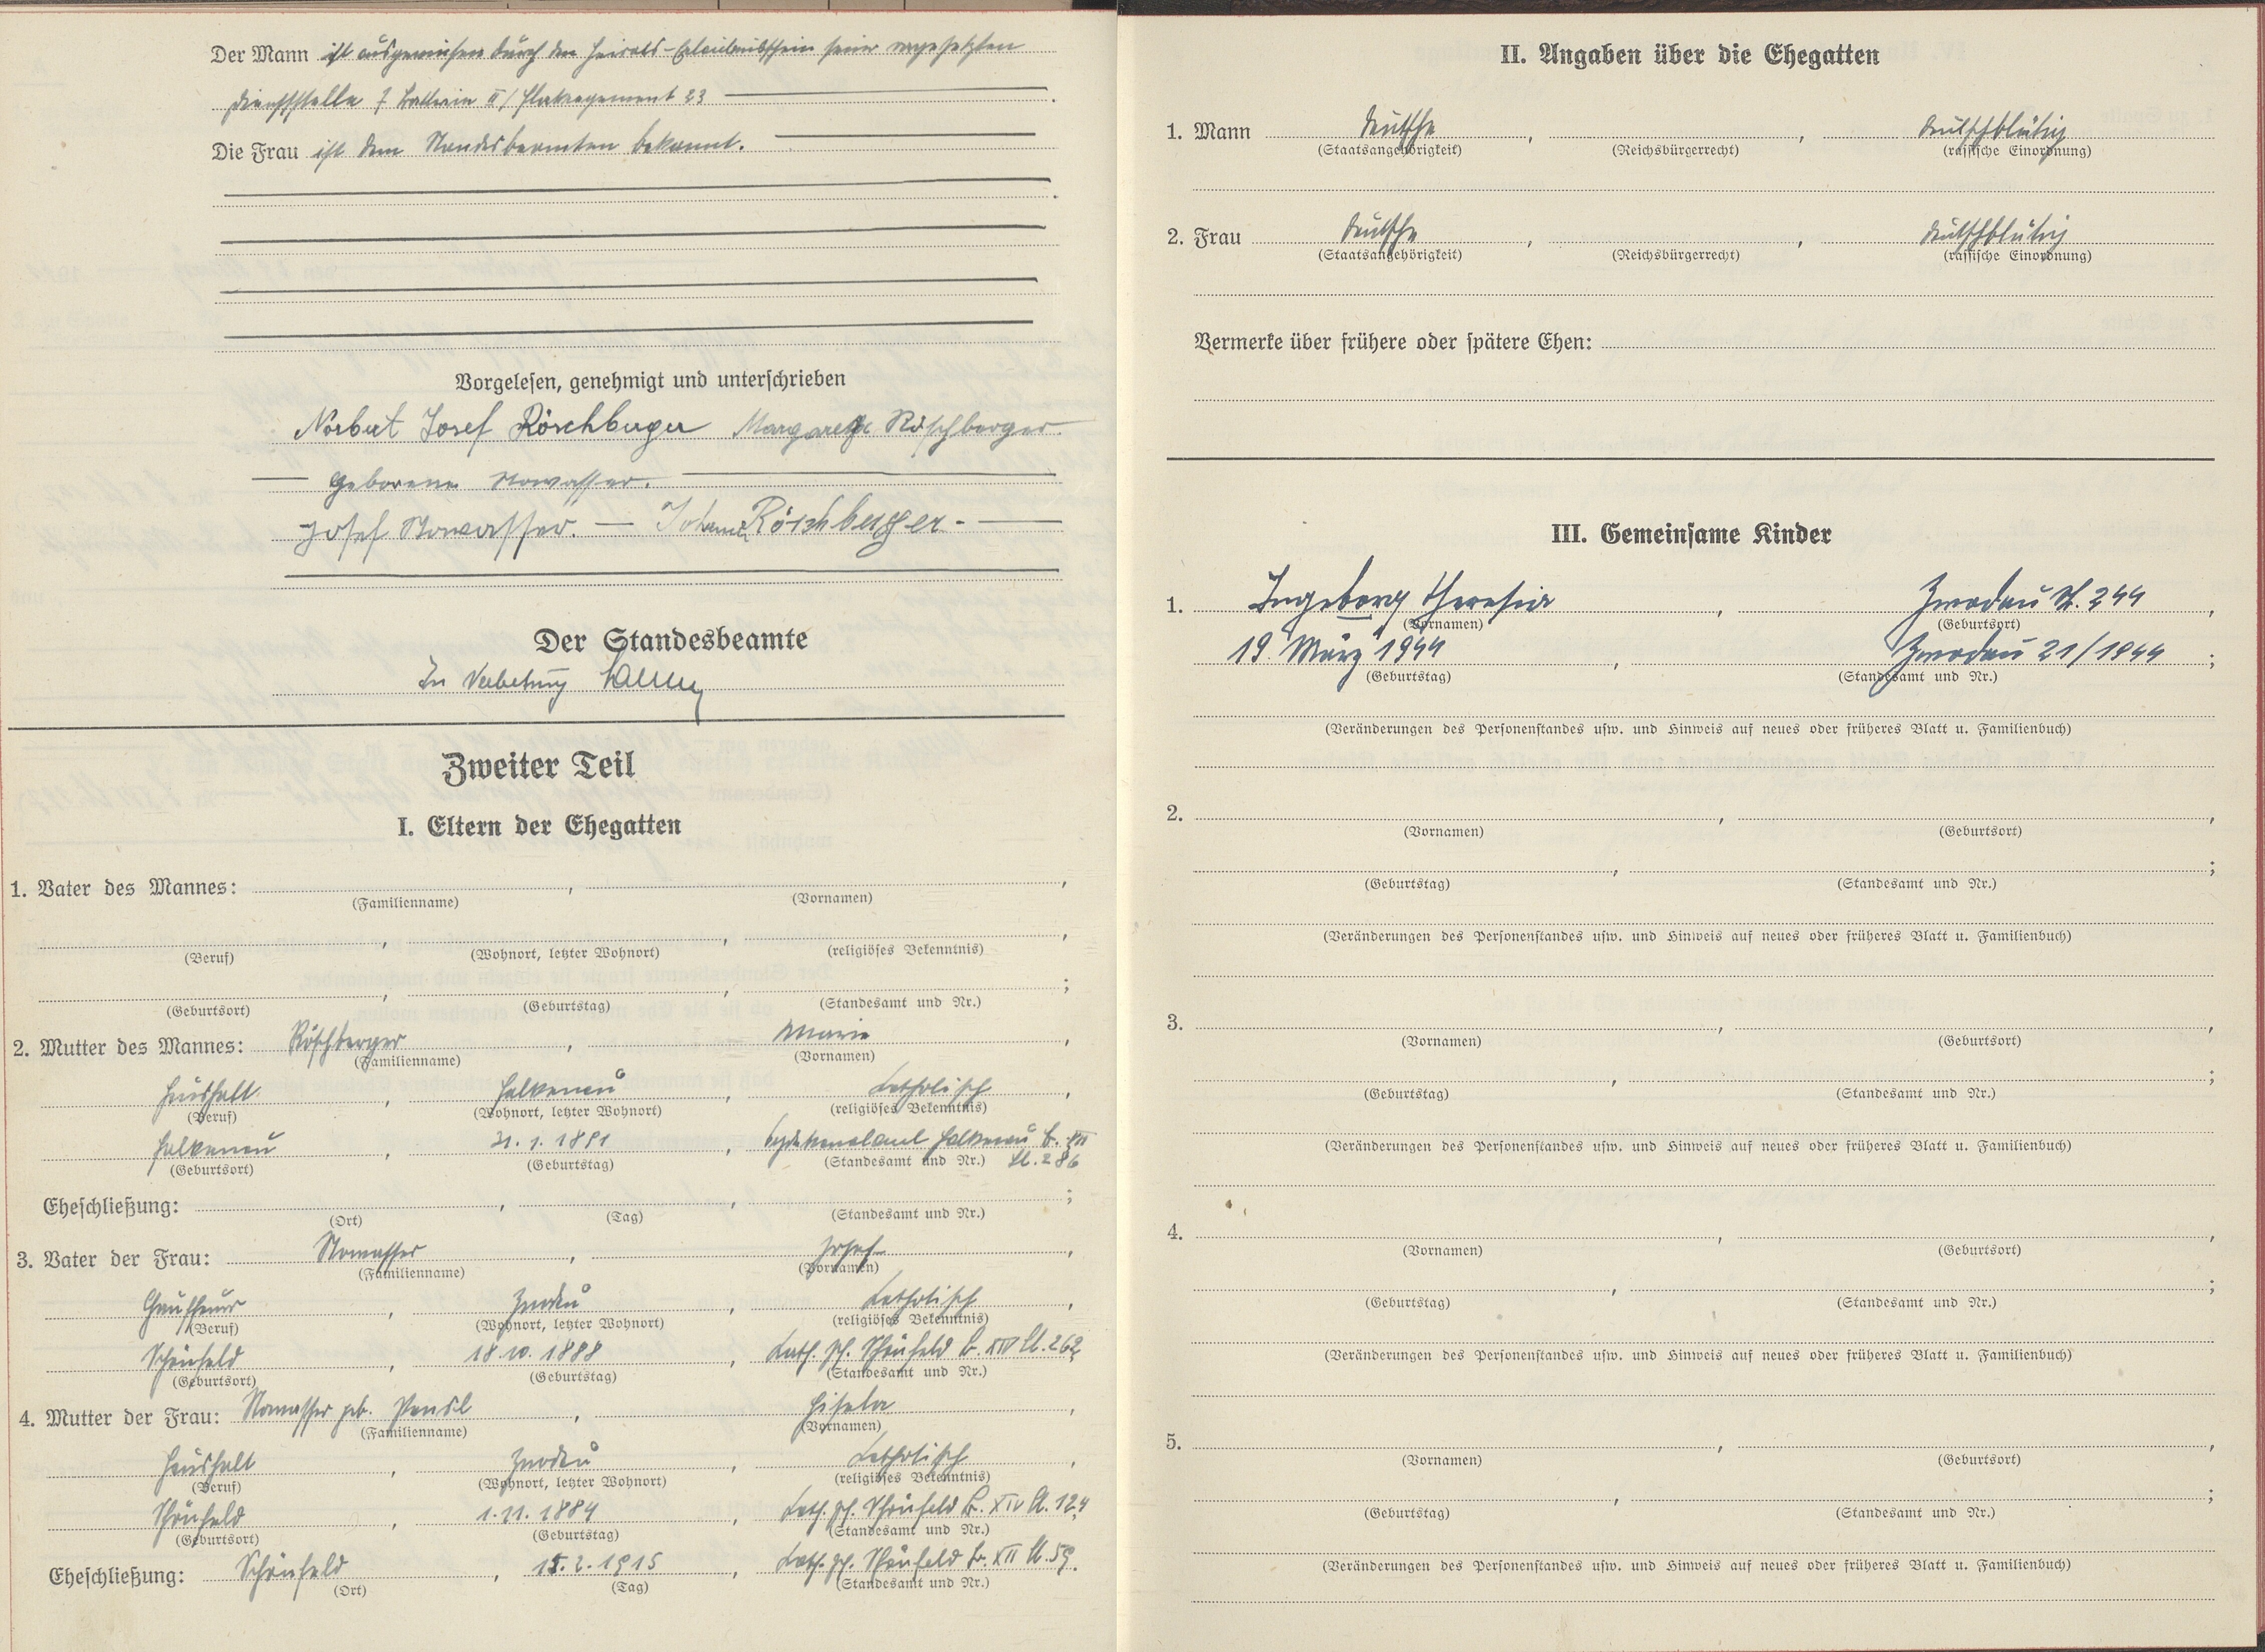 Der Mann ist ausgewiesen durch den Heirats-Erlaubnisschein seiner vorgesetzten
Dienststelle 7 Batterie II/Flakregiment 23
Die Frau ist dem Standesbeamten bekannt.
Vorgelesen, genehmigt und unterschrieben
Norbert Josef Röschberger Margarethe Röschberger
geborene Nowasser.
Josef Nowasser. — Johann Röschberger. —
Der Standesbeamte
In Vertretung
Zweiter Teil
I. Eltern der Ehegatten
1. Vater des Mannes: , ,
(Familienname) (Vornamen)
(Beruf) (Wohnort, letzter Wohnort) (religiöses Bekenntnis)
(Geburtsort) (Geburtstag) (Standesamt und Nr.)
2. Mutter des Mannes: Röschberger , Marie ,
(Familienname) (Vornamen)
Haushalt , Falkenau , katholisch ,
(Beruf) (Wohnort, letzter Wohnort) (religiöses Bekenntnis)
Falkenau , 31. 1. 1891 , Falkenau B. VII
(Geburtsort) (Geburtstag) (Standesamt und Nr.) Bl. 286
Eheschließung: , , ;
(Ort) (Tag) (Standesamt und Nr.)
3. Vater der Frau: Nowasser , Josef ,
(Familienname) (Vornamen)
Chauffeur , Zwodau , katholisch ,
(Beruf) (Wohnort, letzter Wohnort) (religiöses Bekenntnis)
Schönfeld , 18. 10. 1888 , kath. Pf. Schönfeld B. XIV Bl. 262
(Geburtsort) (Geburtstag) (Standesamt und Nr.)
4. Mutter der Frau: Nowasser geb. , Gisela ,
(Familienname) (Vornamen)
Haushalt , Zwodau , katholisch ,
(Beruf) (Wohnort, letzter Wohnort) (religiöses Bekenntnis)
Schönfeld , 1. 11. 1884 , kath. Pf. Schönfeld B. XIV Bl. 124
(Geburtsort) (Geburtstag) (Standesamt und Nr.)
Eheschließung: Schönfeld , 15. 2. 1915 , kath. Pf. Schönfeld B. XII Bl. 59.
(Ort) (Tag) (Standesamt und Nr.)
II. Angaben über die Ehegatten
1. Mann deutsche , , deutschblütig
(Staatsangehörigkeit) (Reichsbürgerrecht) (rassische Einordnung)
2. Frau deutsche , , deutschblütig
(Staatsangehörigkeit) (Reichsbürgerrecht) (rassische Einordnung)
Vermerke über frühere oder spätere Ehen:
III. Gemeinsame Kinder
1. Ingeborg Theresia , Zwodau N. 244 ,
(Vornamen) (Geburtsort)
19. März 1944 , Zwodau 21/1944 ;
(Geburtstag) (Standesamt und Nr.)
(Veränderungen des Personenstandes usw. und Hinweis auf neues oder früheres Blatt u. Familienbuch)
2. , ,
(Vornamen) (Geburtsort)
(Geburtstag) (Standesamt und Nr.)
(Veränderungen des Personenstandes usw. und Hinweis auf neues oder früheres Blatt u. Familienbuch)
3. , ,
(Vornamen) (Geburtsort)
(Geburtstag) (Standesamt und Nr.)
(Veränderungen des Personenstandes usw. und Hinweis auf neues oder früheres Blatt u. Familienbuch)
4. , ,
(Vornamen) (Geburtsort)
(Geburtstag) (Standesamt und Nr.)
(Veränderungen des Personenstandes usw. und Hinweis auf neues oder früheres Blatt u. Familienbuch)
5. , ,
(Vornamen) (Geburtsort)
(Geburtstag) (Standesamt und Nr.)
(Veränderungen des Personenstandes usw. und Hinweis auf neues oder früheres Blatt u. Familienbuch)